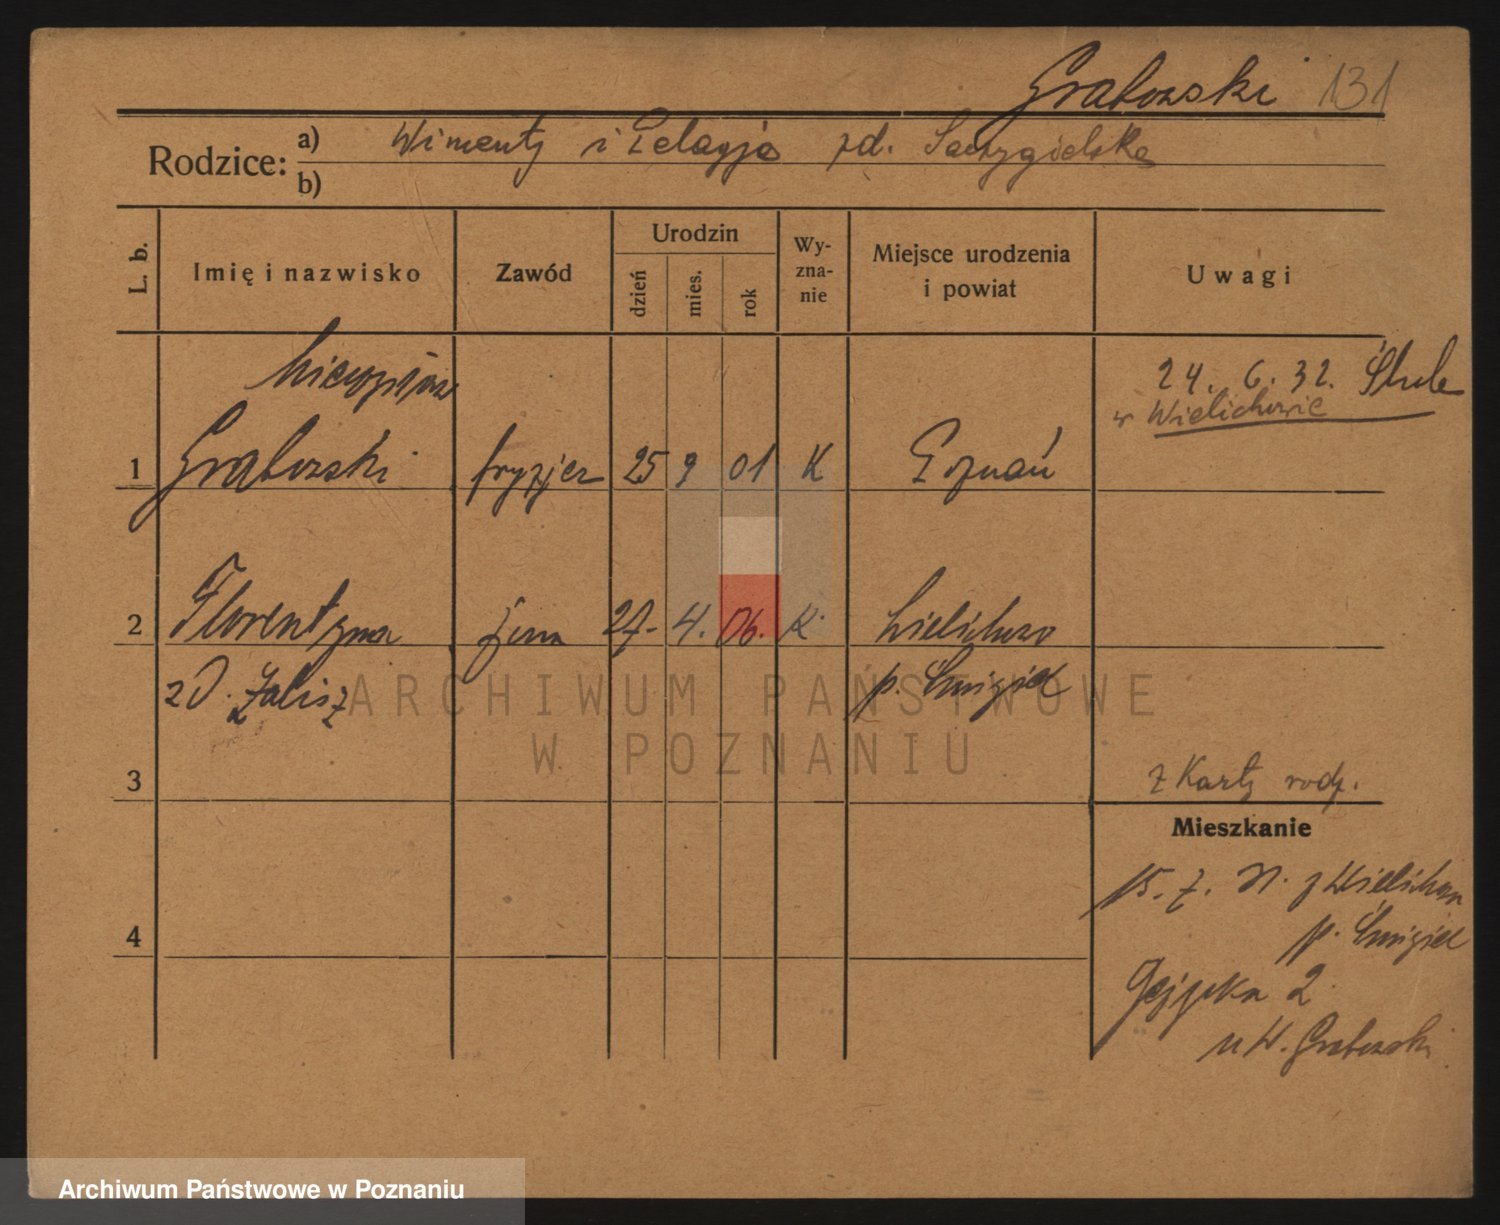 Grabowski 131
Rodzice: a) Wincenty i Pelagja zd. Szczygielska
b)
L. b. Imię i nazwisko Zawód Urodzin dzień mies. rok Wy-zna-nie Miejsce urodzenia i powiat Uwagi
Mieczysław 24. 6. 32. Ślub
w Wielichowie
1 Grabowski fryzjer 25 9 01 K Poznań
2 Florentyna żona 27. 4. 06. K. Wielichowo
zd. p. Śmigiel
3 z Karty rodz.
Mieszkanie
15. 7. z Wielichowa
4 p. Śmigiel
2
u W. Grabowski
ARCHIWUM PAŃSTWOWE
W POZNANIU
Archiwum Państwowe w Poznaniu